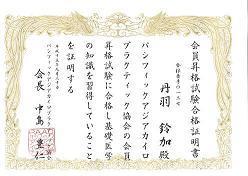 会員昇格試験合格証明書
丹羽 鈴加殿
パシフィックアジアカイロ
プラクティック協会の会員
昇格試験に合格し基礎医学
の知識を習得していること
を証明する
パシフィックアジアカイロプラクティック協会
会長 中島 豊仁